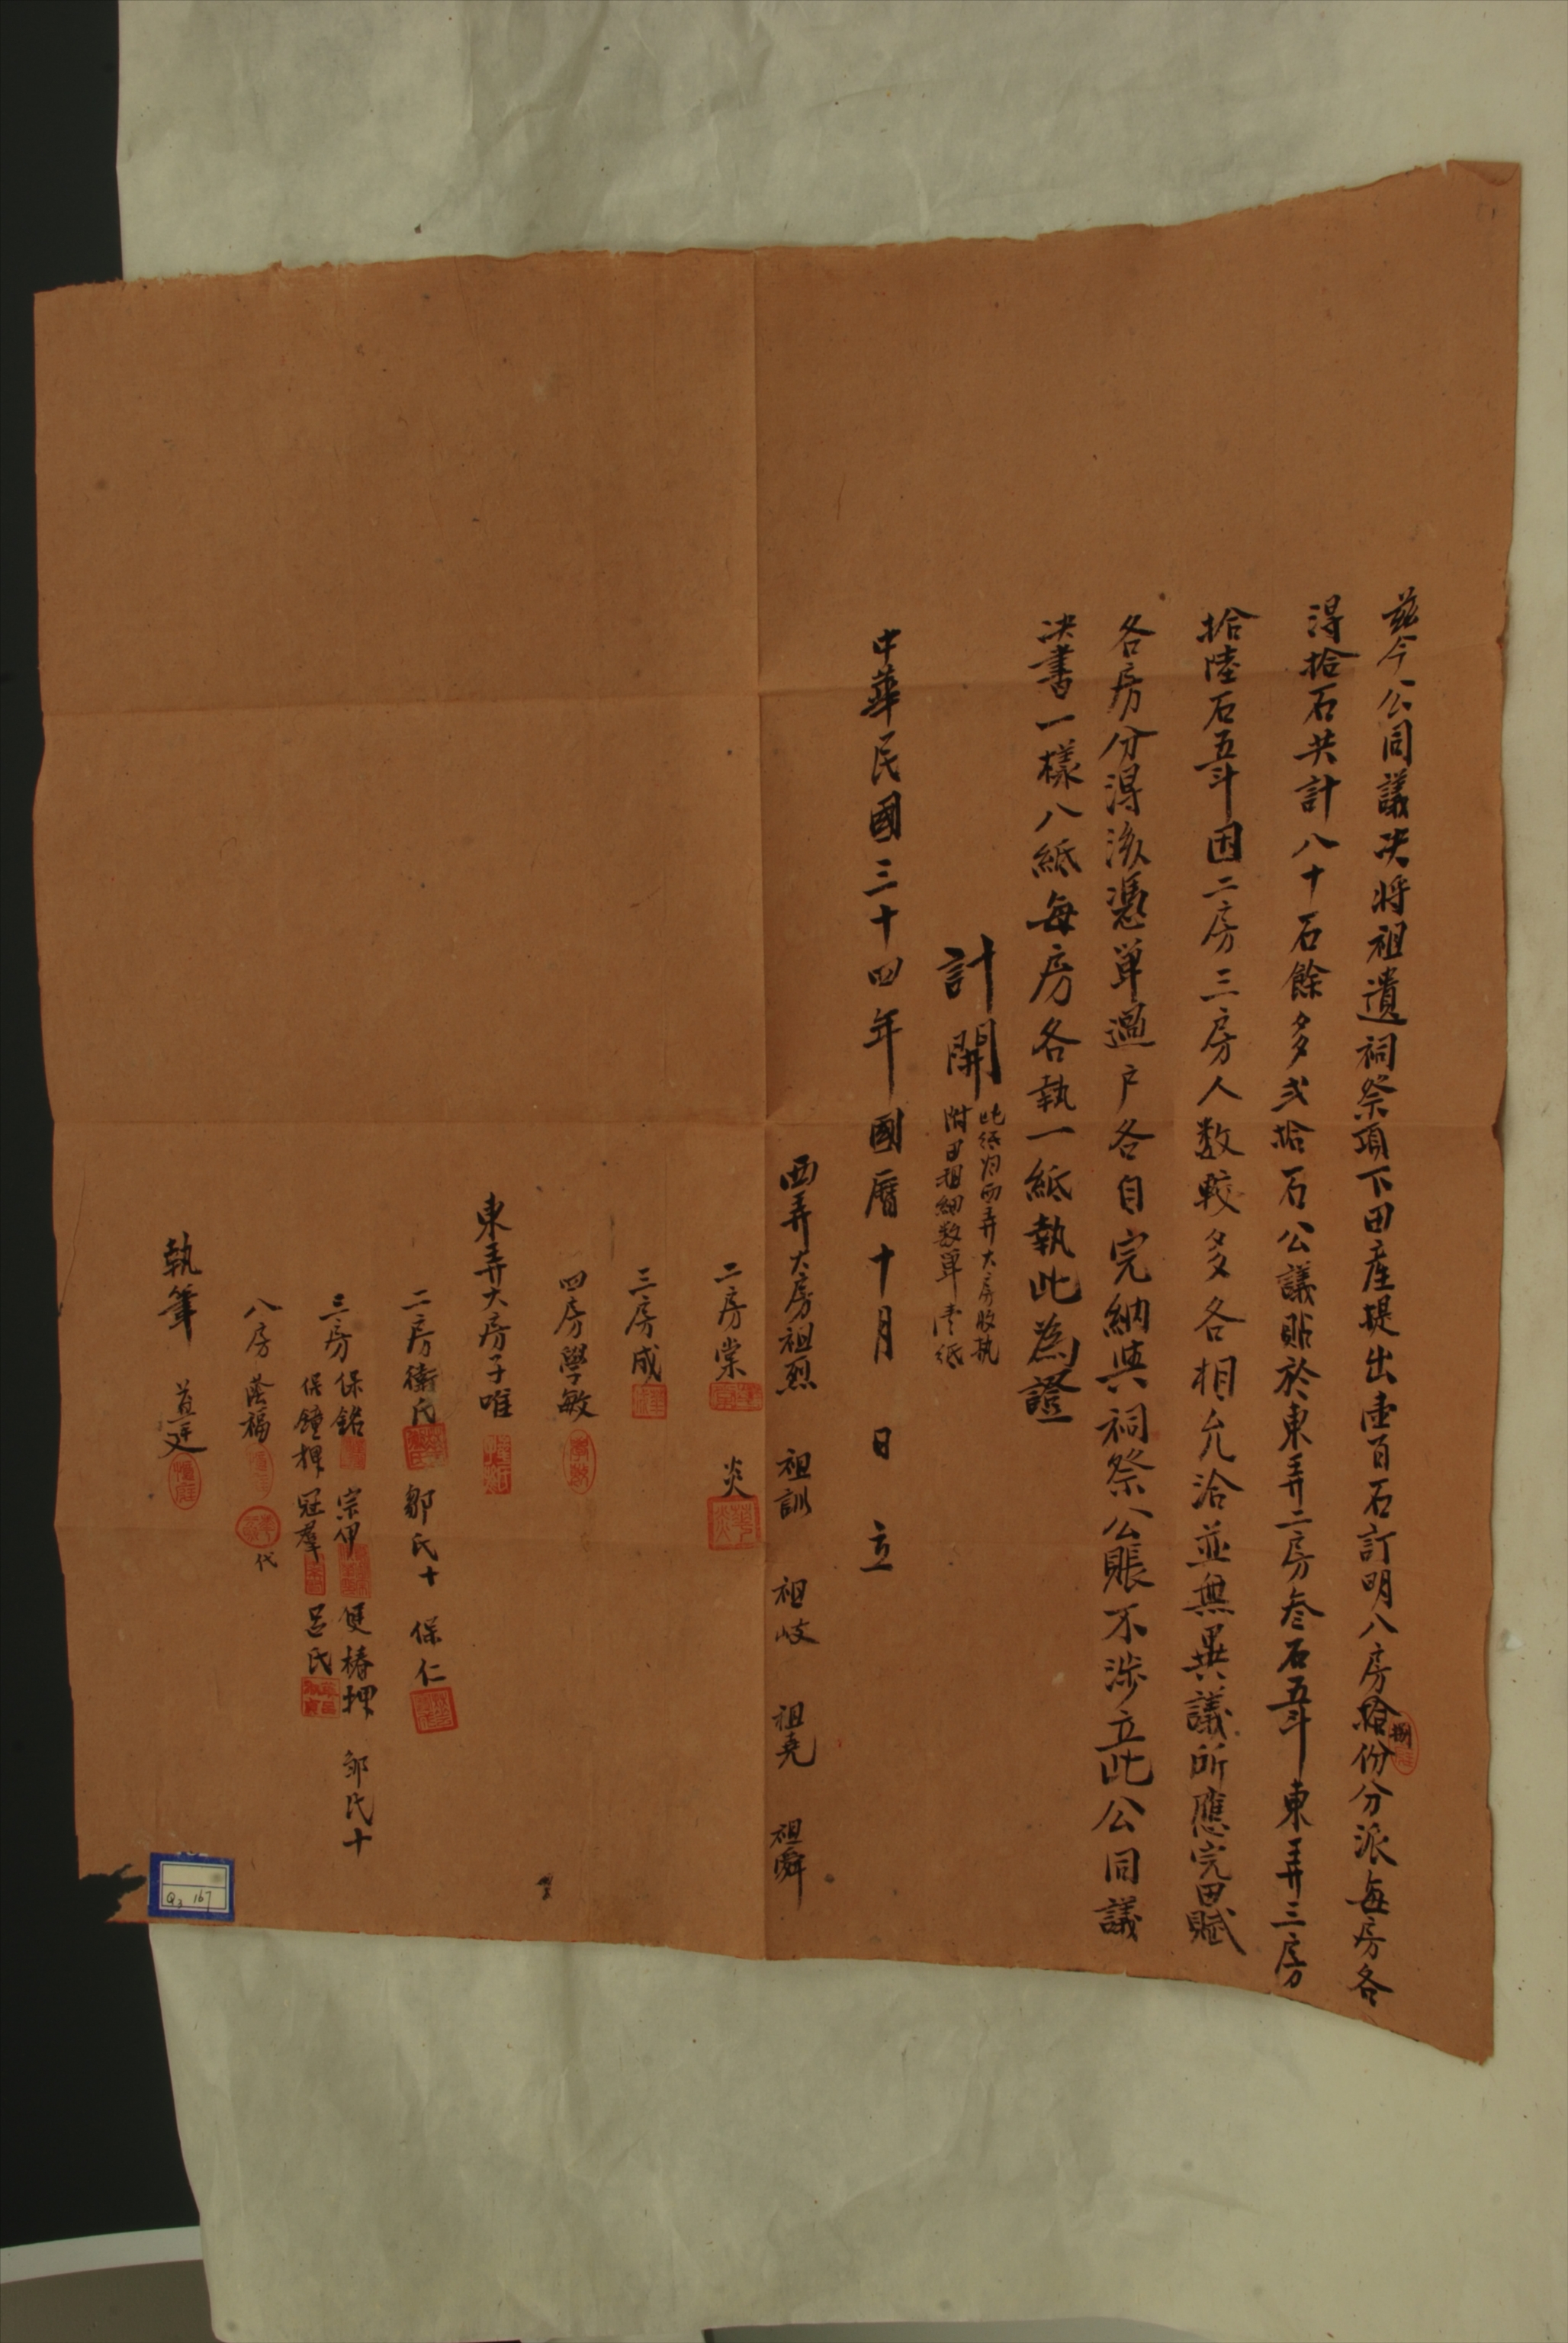 茲今公同議决將祖遺祠祭項下田産提出壹百石訂明八房捌份分派每房各
得拾石共計八十石餘多弍拾石公議貼於東弄二房叁石五斗東弄三房
拾陸石五斗因二房三房人数較多各相允洽並無異議所應完田賦
各房分得後憑單過户各自完納與祠祭公賬不涉立此公同議
决書一樣八紙每房各執一紙執此為證
計開
此紙归西弄大房收執
附田租細数單壹紙
中華民國三十四年國曆十月 日 立
西弄大房祖烈 祖訓 祖岐 祖堯 祖舜
二房棠 炎
三房成
四房學敏
東弄大房子唯
二房衛氏 鄒氏十 保仁
三房 保銘 宗伊 健椿押 邹氏十
保鐘押 冠羣 呂氏
八房 蔭福 代
執筆 道廷
Q3 167